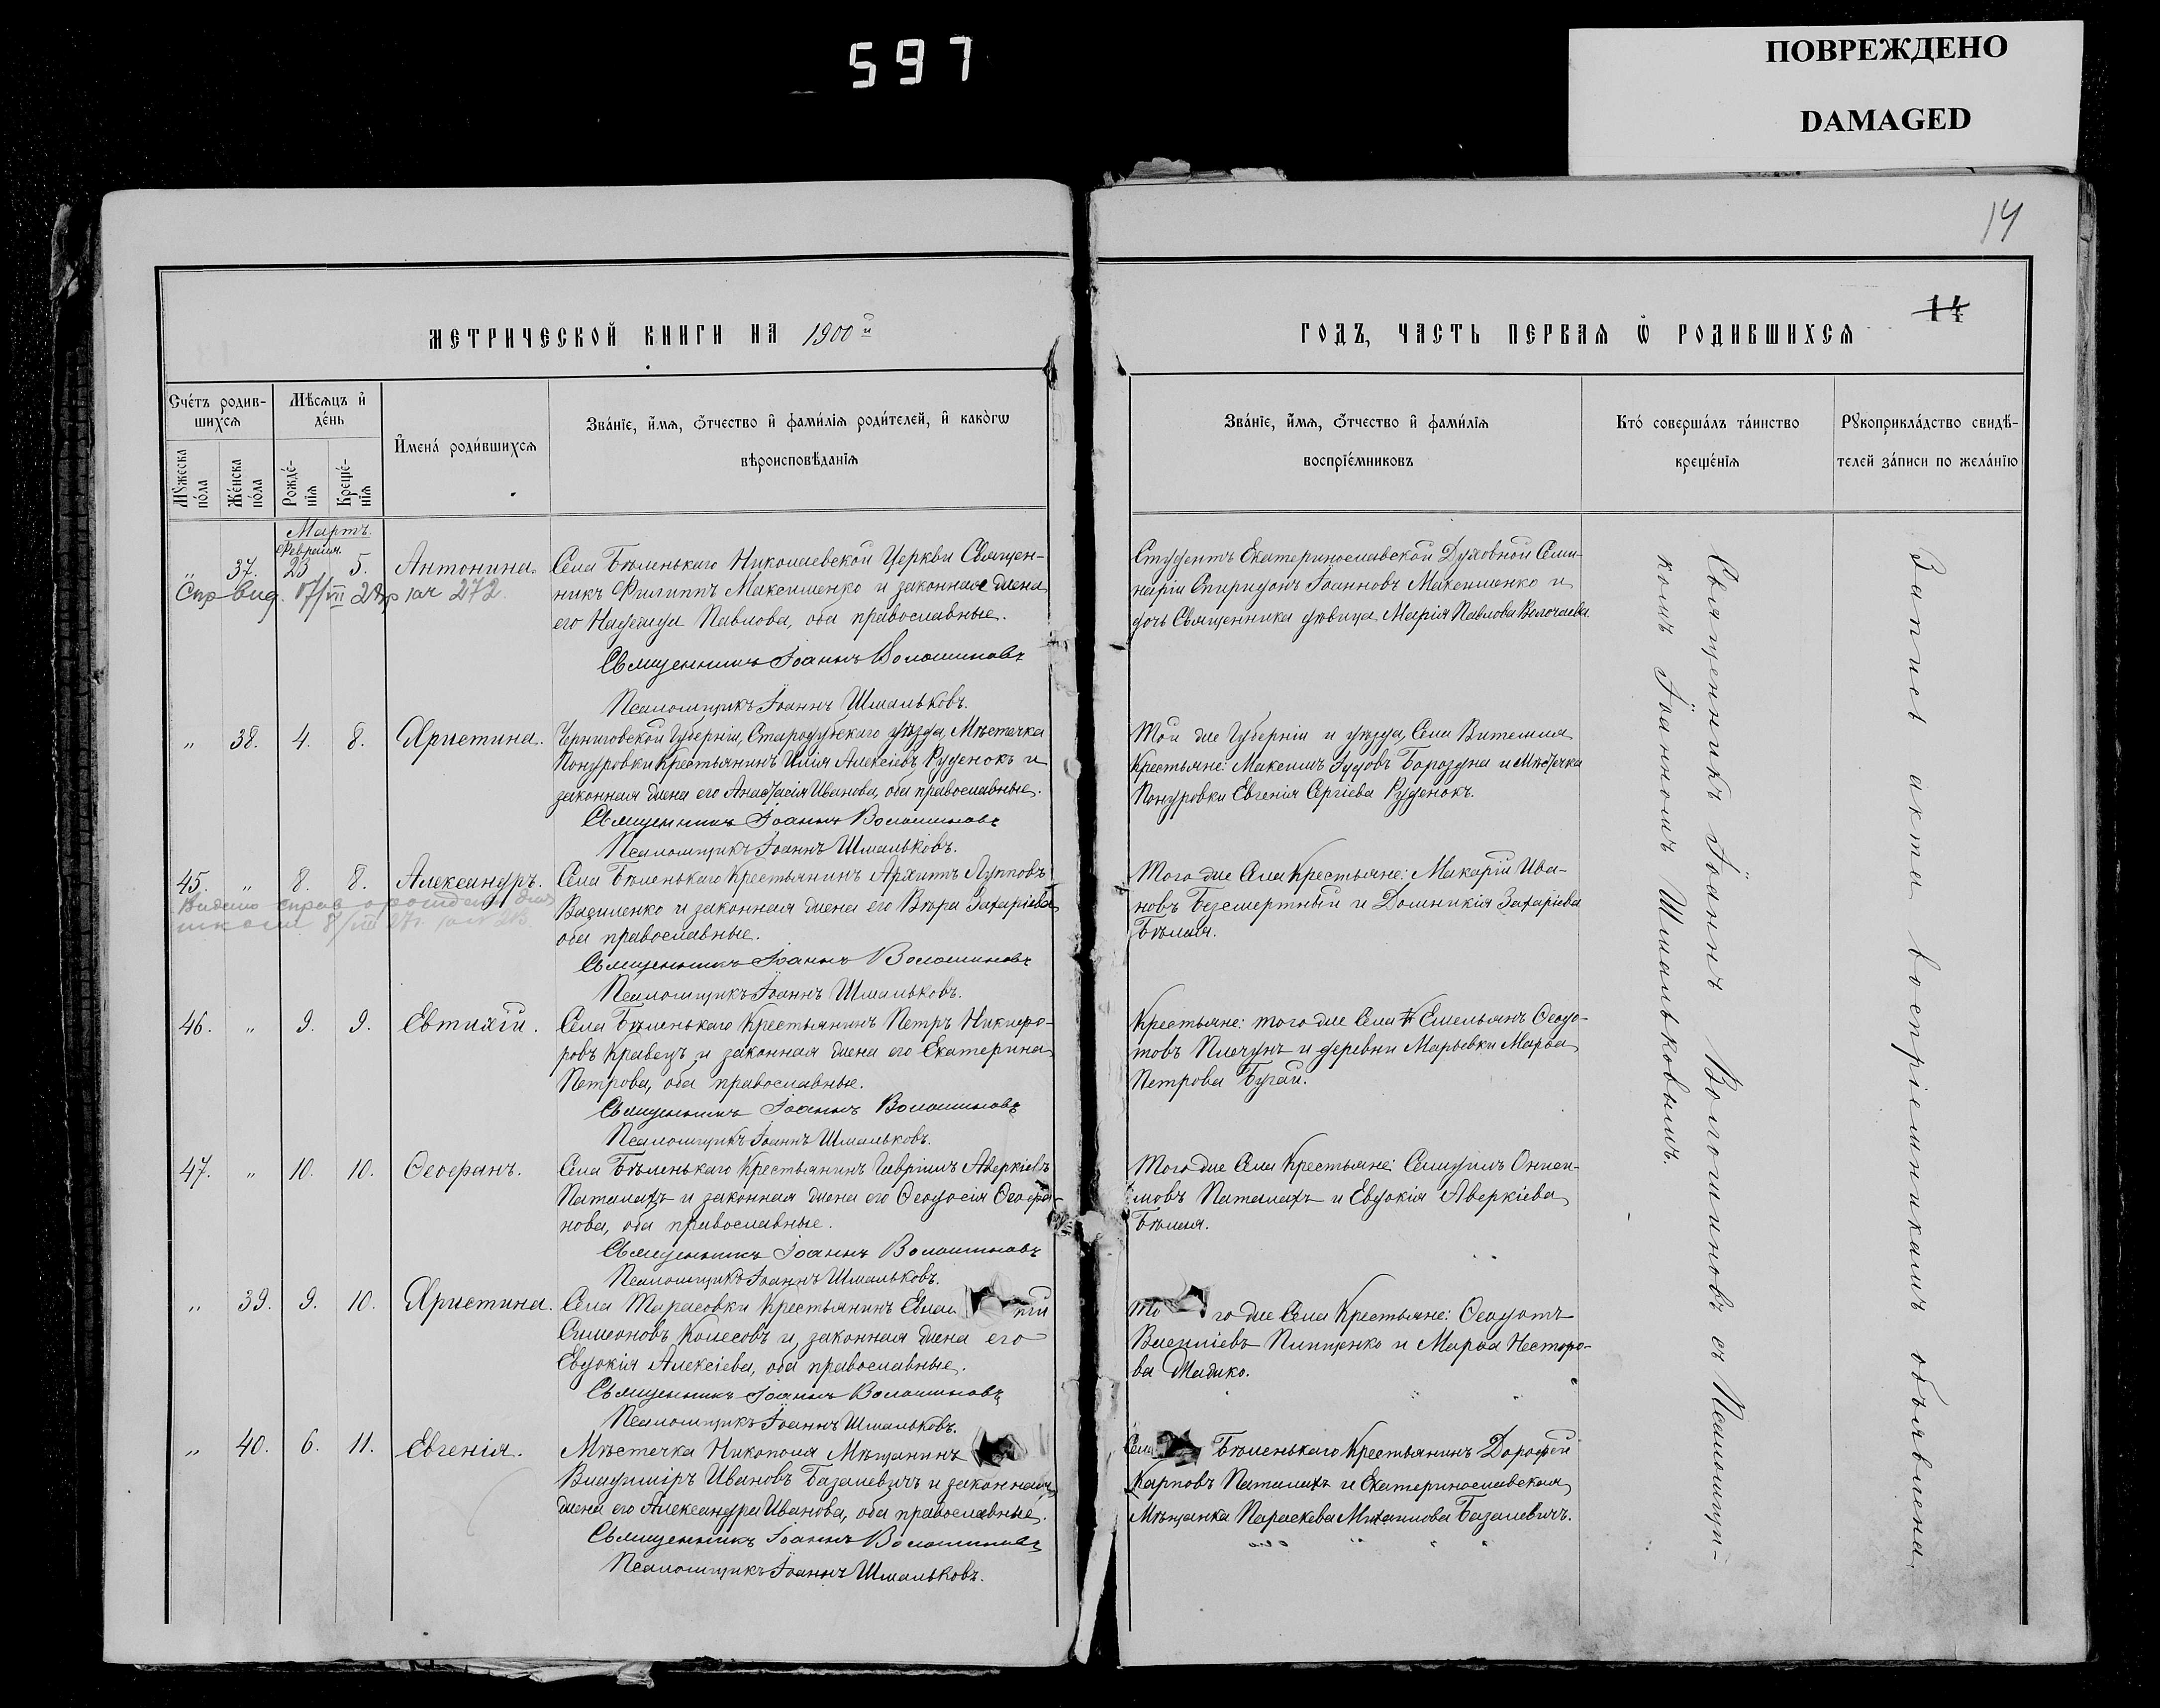 597
ПОВРЕЖДЕНО
DAMAGED
14
14
МЕТРИЧЕСКОЙ КНИГИ НА 1900й
ГОДЪ, ЧАСТЬ ПЕРВАЯ Ѿ РОДИВШИХСЯ
Счетъ родив-
шихся
Мѣсяцъ и
день
Мужеска пола
Женска пола
Рожде-
нія
Креще-
нія
Имена родившихся
Званіе, имя, отчество и фамилія родителей, и какогѡ
вѣроисповѣданія
Званіе, имя, отчество и фамилія
воспріемниковъ
Кто совершалъ таинство
крещенія
Рукоприкладство свидѣ-
телей записи по желанію
Мартъ.
Февраля.
„ 37. 23 5. Антонина.
Села Бѣленькаго Николаевской Церкви Священ-
никъ Филиппъ Максименко и законная жена
его Надежда Павлова, оба православные.
Священникъ Іоаннъ Волошиновъ
Псаломщикъ Іоаннъ Шмальковъ.
Студентъ Екатеринославской Духовной Семи-
наріи Спиридонъ Іоанновъ Максименко и
дочь Священника дѣвица Марія Павлова Волочаева.
272.
„ 38. 4. 8. Христина.
Черниговской Губерніи, Стародубскаго уѣзда, Мѣстечка
Понуровки Крестьянинъ Илія Алексіевъ Руденокъ и
законная жена его Анастасія Иванова, оба православные.
Священникъ Іоаннъ Волошиновъ
Псаломщикъ Іоаннъ Шмальковъ.
Той же Губерніи и уѣзда, Села Витемля
Крестьяне: Максимъ Іудовъ Бороздна и Мѣстечка
Понуровки Евгенія Сергіева Руденокъ.
45. „ 8. 8. Александръ.
Села Бѣленькаго Крестьянинъ Архипъ Лупповъ
Василенко и законная жена его Вѣра Захаріева
оба православные.
Священникъ Іоаннъ Волошиновъ
Псаломщикъ Іоаннъ Шмальковъ.
Того же Села Крестьяне: Макарій Ива-
новъ Безсмертный и Домникія Захаріева
Бѣлая.
46. „ 9. 9. Евтихій.
Села Бѣленькаго Крестьянинъ Петръ Никифо-
ровъ Кравецъ и законная жена его Екатерина
Петрова, оба православные.
Священникъ Іоаннъ Волошиновъ
Псаломщикъ Іоаннъ Шмальковъ.
Крестьяне: того же Села Емельянъ Ѳеодо-
товъ Плечунъ и деревни Марьевки Марѳа
Петрова Бугай.
47. „ 10. 10. Ѳеофанъ.
Села Бѣленькаго Крестьянинъ Гавріилъ Аверкіевъ
Паталахъ и законная жена его Ѳеодосія Ѳеофа-
нова, оба православные.
Священникъ Іоаннъ Волошиновъ
Псаломщикъ Іоаннъ Шмальковъ.
Того же Села Крестьяне: Самуилъ Ониси-
мовъ Паталахъ и Евдокія Аверкіева
Бѣлая.
„ 39. 9. 10. Христина.
Села Тарасовки Крестьянинъ
Симеоновъ Колесовъ и законная жена его
Евдокія Алексіева, оба православные.
Священникъ Іоаннъ Волошиновъ
Псаломщикъ Іоаннъ Шмальковъ.
То го же Села Крестьяне: Ѳеодотъ
Василіевъ Пищенко и Марѳа Несторо-
ва Мадико.
„ 40. 6. 11. Евгенія.
Мѣстечка Никополя Мѣщанинъ
Владиміръ Ивановъ Базалевичъ и законная
жена его Александра Иванова, оба православные.
Священникъ Іоаннъ Волошиновъ
Псаломщикъ Іоаннъ Шмальковъ.
Села Бѣленькаго Крестьянинъ Дорофей
Карповъ Паталахъ и Екатеринославская
Мѣщанка Параскева Михаилова Базалевичъ.
Священникъ Іоаннъ Волошиновъ съ Псаломщи-
комъ Іоанномъ Шмальковымъ.
Запись акта воспріемникамъ объявлена.